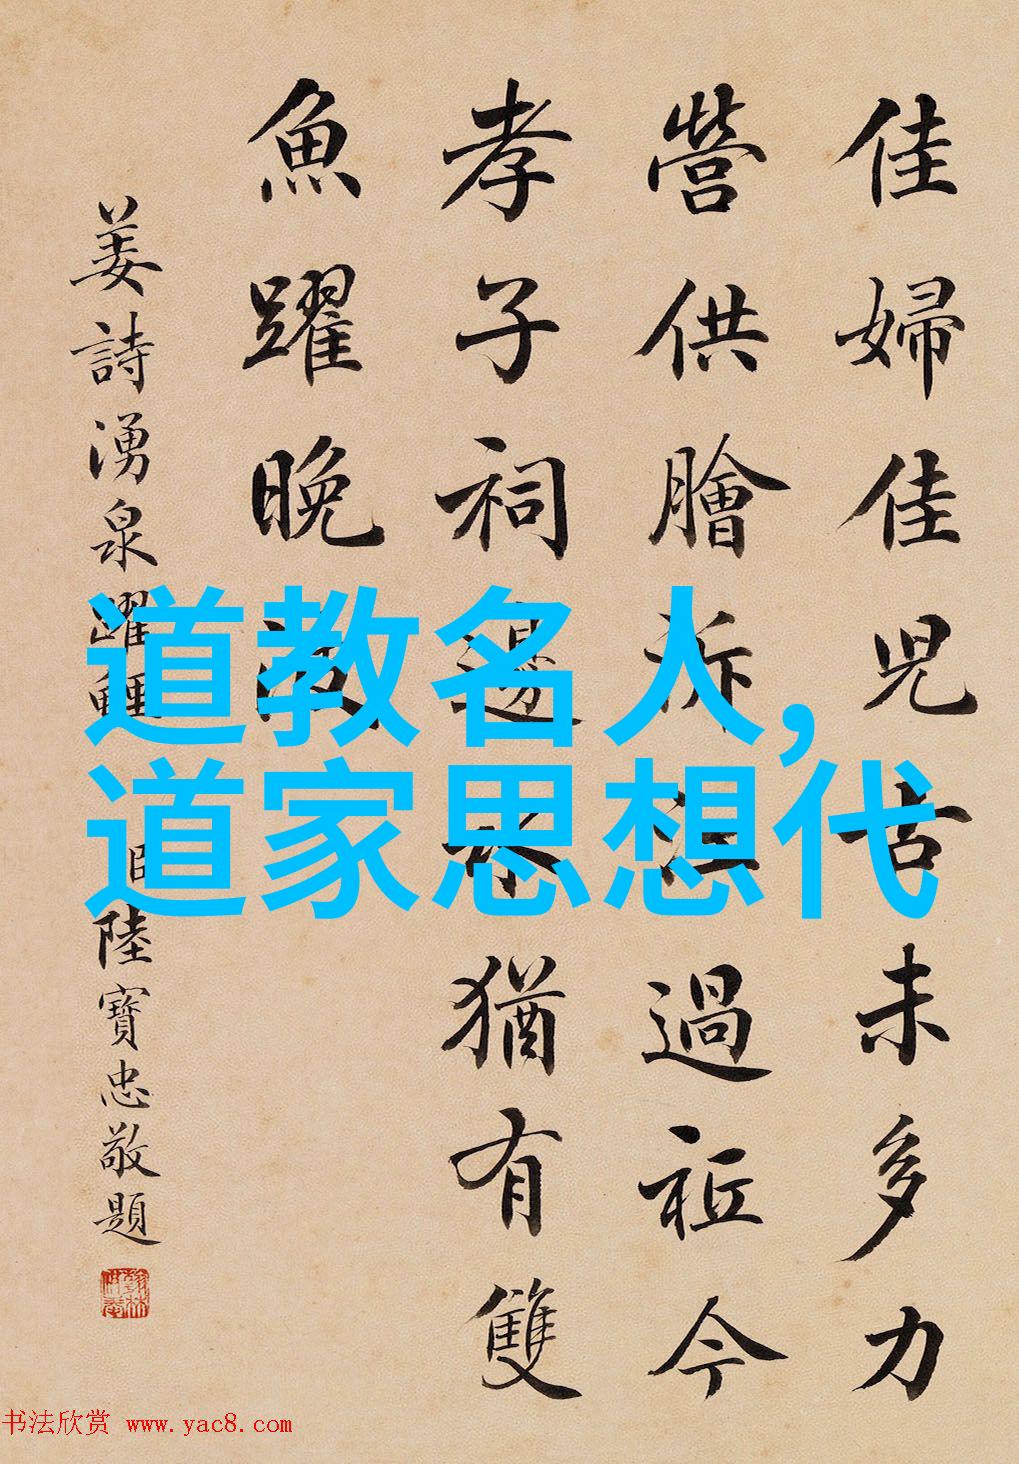 佳婦佳兒古未多力
營供膾泝江過祗今
孝子祠邊水猶有雙
魚躍晚波
姜詩湧泉躍鯉 臣陸寶忠敬題
道教名人,
道家思想代
书法欣赏 www.yac8.com